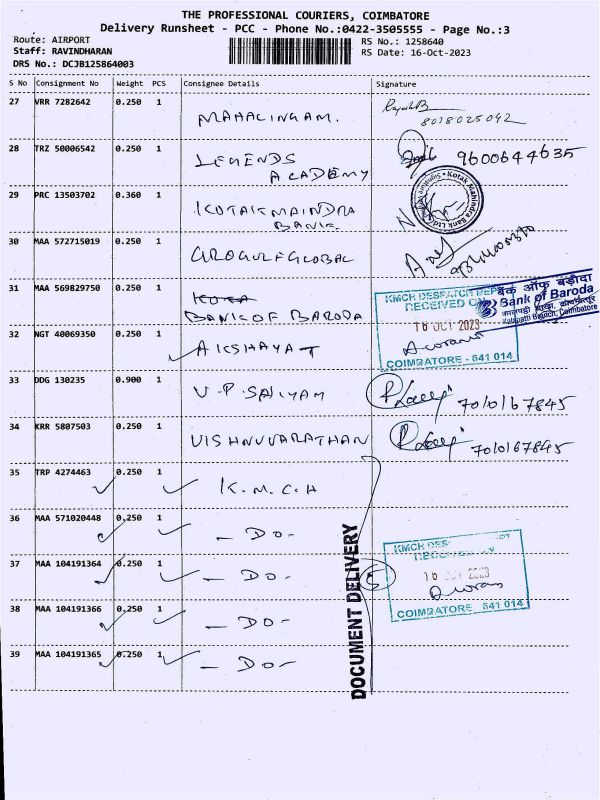 THE PROFESSIONAL COURIERS, COIMBATORE
Delivery Runsheet - PCC - Phone No.:0422-3505555 - Page No.:3
Route: AIRPORT
RS No.: 1258640
Staff: RAVINDHARAN
RS Date: 16-Oct-2023
DRS No.: DCJB125864003
S No Consignment No Weight PCS Consignee Details Signature
27 VRR 7282642 0.250 1 MAHALINGAM.
8018025042
28 TRZ 50006542 0.250 1 LEGENDS ACADEMY
9600644635
29 PRC 13503702 0.360 1 KOTAK MAINDRA BANK
Kotak Mahindra Bank Ltd
30 MAA 572715019 0.250 1 AROGULFGLOBAL
31 MAA 569829750 0.250 1 BANK OF BARODA
KMCH DESPATCH DEPT
RECEIVED ON
16 OCT 2023
COIMBATORE - 641 014
बैंक ऑफ़ बड़ौदा
Bank of Baroda
Kalapatti Branch, Coimbatore
32 NGT 40069350 0.250 1 AKSHAYAT
33 DDG 130235 0.900 1 V.P. SALYAM
7010167845
34 KRR 5807503 0.250 1 VISHNUVARATHAN
7010167845
35 TRP 4274463 0.250 1 K.M.C.H
36 MAA 571020448 0.250 1 - DO -
37 MAA 104191364 0.250 1 - DO -
38 MAA 104191366 0.250 1 - DO -
39 MAA 104191365 0.250 1 - DO -
DOCUMENT DELIVERY
5
KMCH DES
16 OCT 2023
COIMBATORE - 641 014